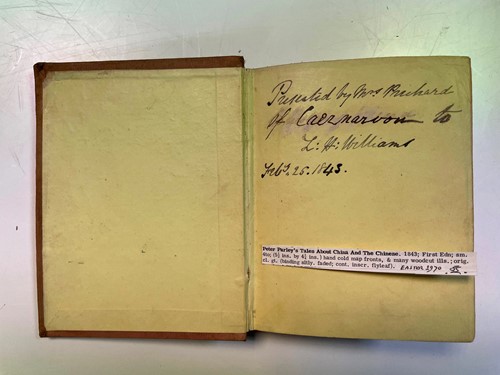 Presented by Mrs Prichard
of Caeznarvon to
L: H: Williams
Feb: 25. 1843.
Peter Parley's Tales About China And The Chinese. 1843; First Edn; sm.
4to; (5½ ins. by 4½ ins.) hand cold map fronts, & many woodcut ills.; orig.
cl. gt. (binding sltly. faded; cont. inscr. flyleaf). EASTER 1970